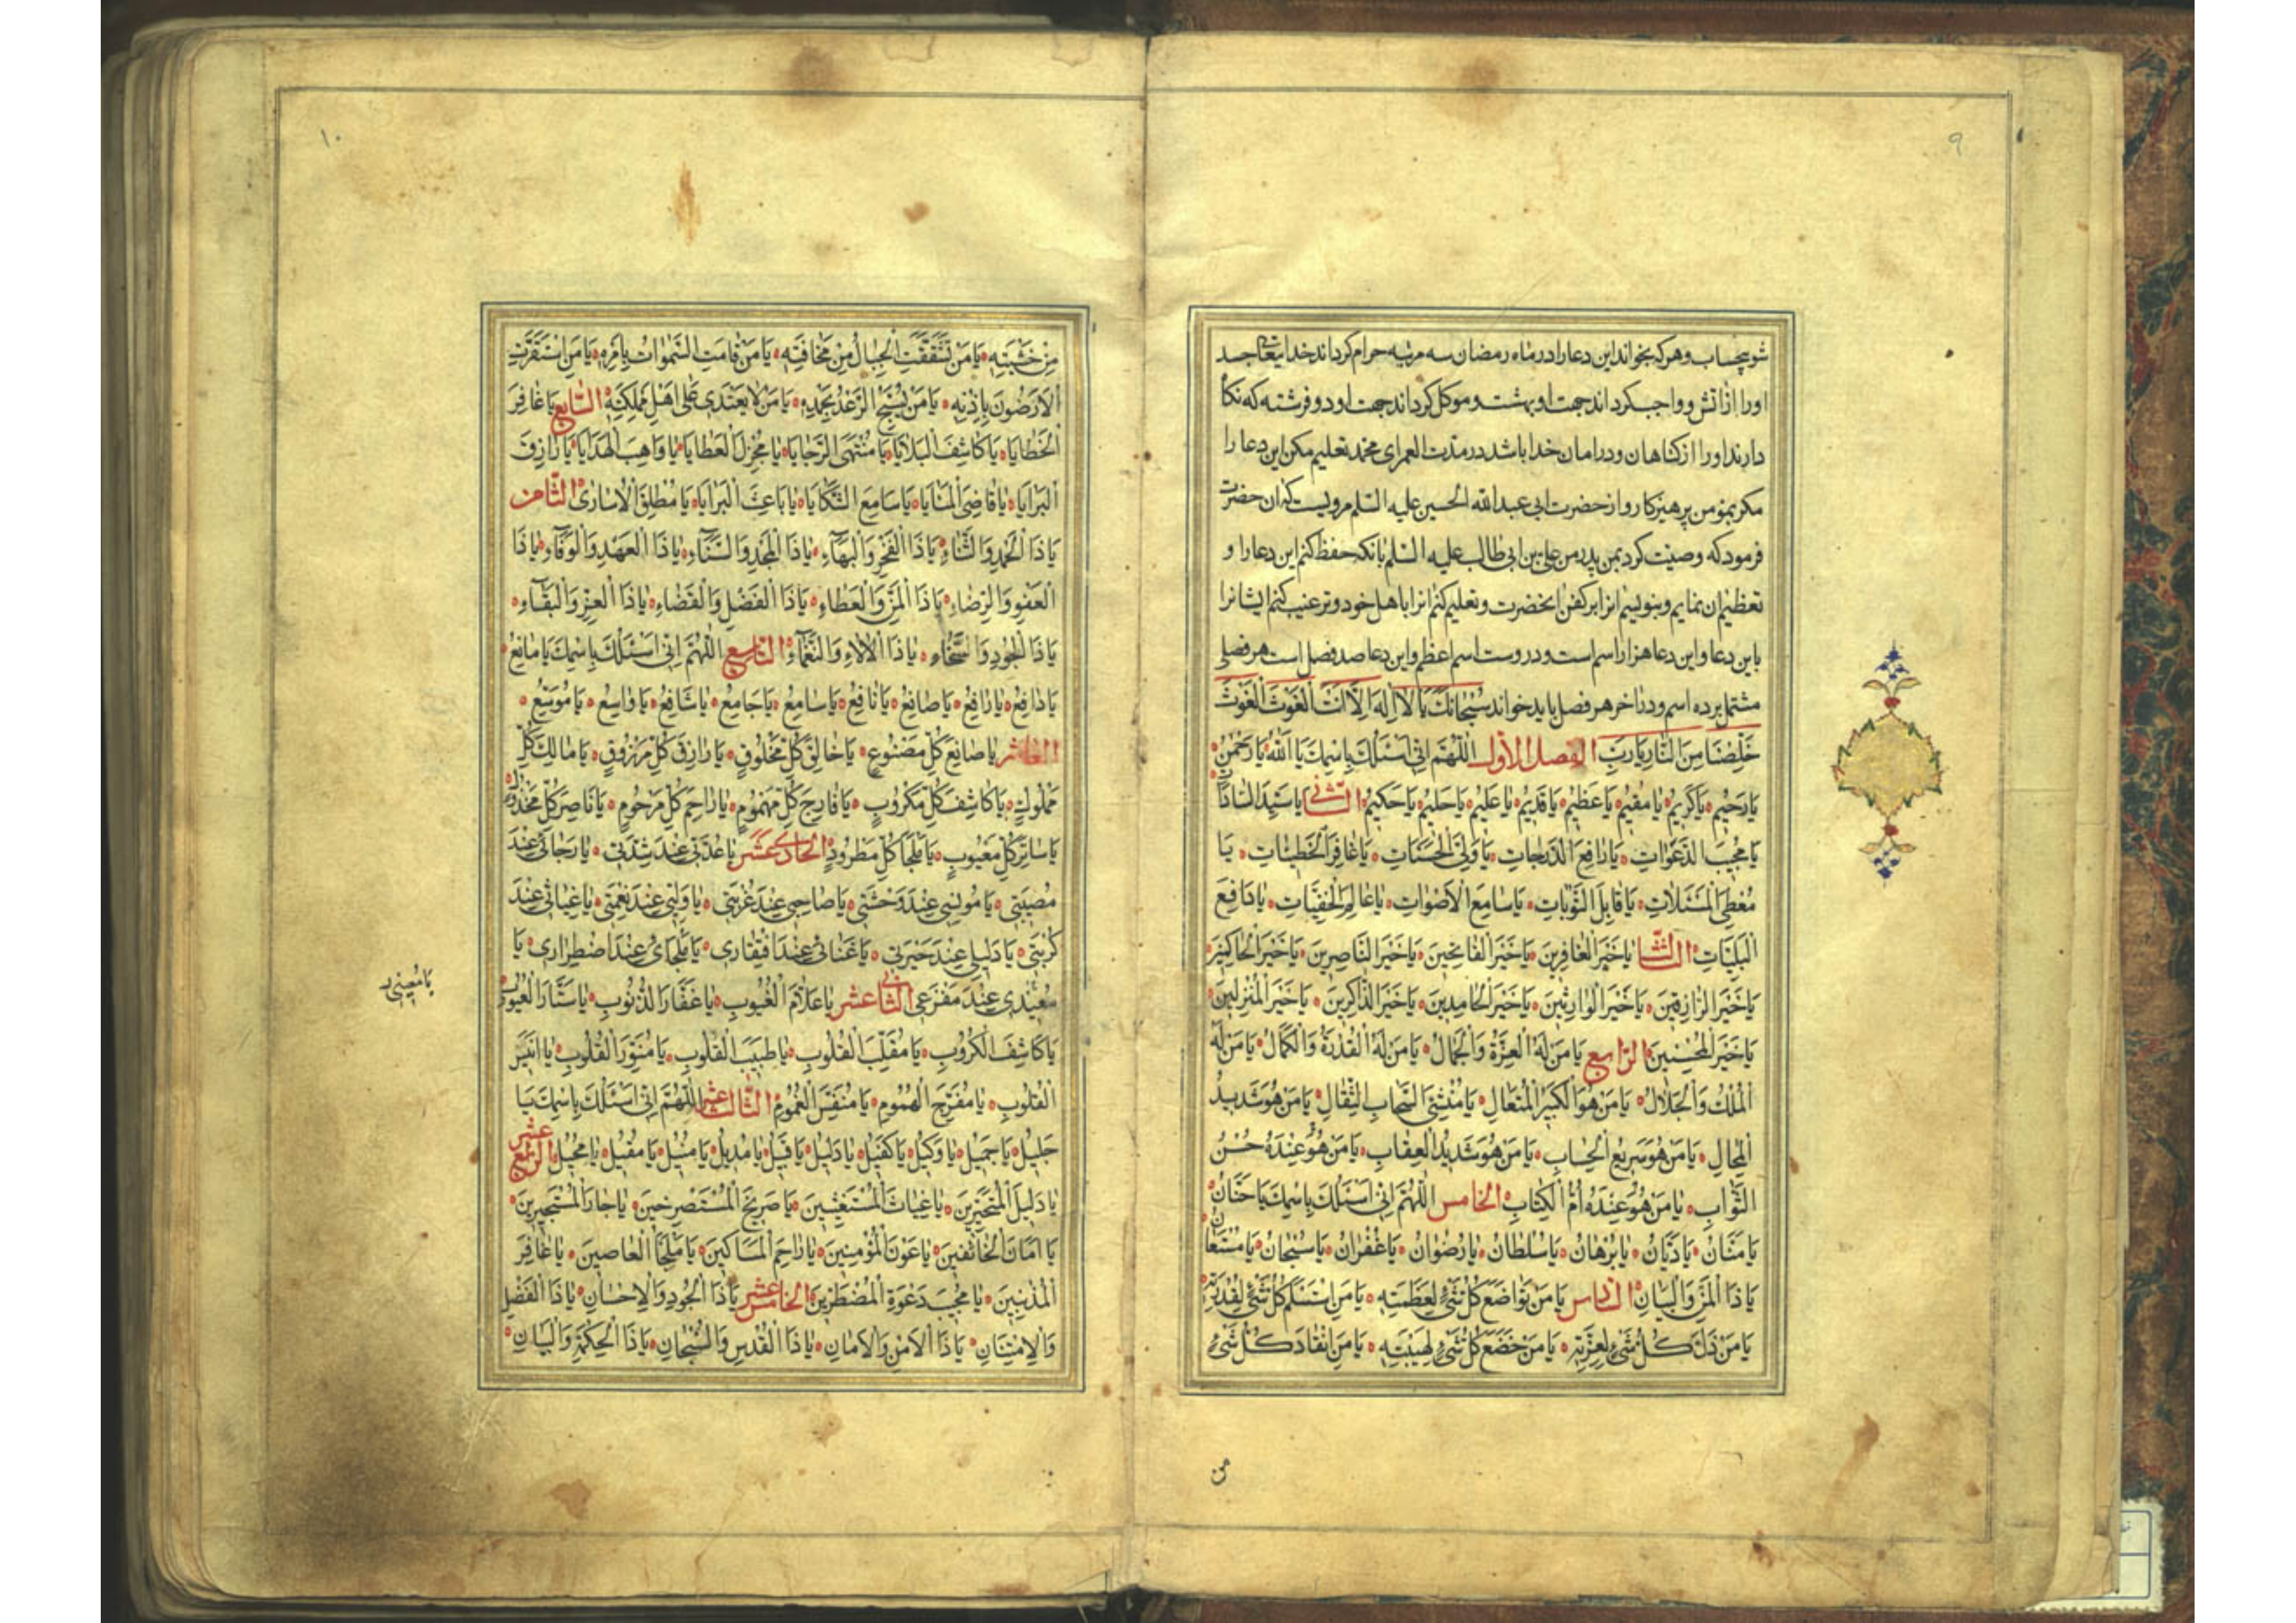 ۹
شو بیحساب و هر که بخواند این دعا را در ماه رمضان سه مرتبه حرام کرداند خدایتعالی جسد
او را از اتش و واجب کرداند جهت او بهشت و موکل کرداند جهت او دو فرشته که نکاه
دارند او را از کناهان و در امان خدا باشد در مدت العمر ای محمد تعلیم مکن این دعا را
مکر بمؤمن پرهیزکار و از حضرت ابی عبدالله الحسین علیه السلم مرویست که ان حضرت
فرمود که وصیت کرد بمن پدر من علی بن ابی طالب علیه السلم بانکه حفظ کنم این دعا را و
تعظیم ان نمایم و بنویسم انرا بر کفن انحضرت و تعلیم کنم انرا باهل خود و ترغیب کنم ایشانرا
باین دعا و این دعا هزار اسم است و دروست اسم اعظم و این دعا صد فصل است هر فصلی
مشتمل بر ده اسم و در اخر هر فصل باید خواند سُبْحانَكَ يا لا اِلهَ اِلّا اَنْتَ الْغَوْثَ الْغَوْثَ
خَلِّصْنا مِنَ النّارِ يا رَبِّ الفصل الأول اَللّهُمَّ اِنّى اَسْئَلُكَ بِاسْمِكَ يا اَللهُ يا رَحْمنُ
يا رَحيمُ يا كَريمُ يا مُقيمُ يا عَظيمُ يا قَديمُ يا عَليمُ يا حَليمُ يا حَكيمُ الثانی يا سَيِّدَ السّاداتِ
يا مُجيبَ الدَّعَواتِ يا رافِعَ الدَّرَجاتِ يا وَلِىَّ الْحَسَناتِ يا غافِرَ الْخَطيئاتِ يا
مُعْطِىَ الْمَسْئَلاتِ يا قابِلَ التَّوْباتِ يا سامِعَ الْاَصْواتِ يا عالِمَ الْخَفِيّاتِ يا دافِعَ
الْبَلِيّاتِ الثالث يا خَيْرَ الْغافِرينَ يا خَيْرَ الْفاتِحينَ يا خَيْرَ النّاصِرينَ يا خَيْرَ الْحاكِمينَ
يا خَيْرَ الرّازِقينَ يا خَيْرَ الْوارِثينَ يا خَيْرَ الْحامِدينَ يا خَيْرَ الذّاكِرينَ يا خَيْرَ الْمُنْزِلينَ
يا خَيْرَ الْمُحْسِنينَ الرابع يا مَنْ لَهُ الْعِزَّةُ وَالْجَمالُ يا مَنْ لَهُ الْقُدْرَةُ وَالْكَمالُ يا مَنْ لَهُ
الْمُلْكُ وَالْجَلالُ يا مَنْ هُوَ الْكَبيرُ الْمُتَعالِ يا مُنْشِئَ السَّحابِ الثِّقالِ يا مَنْ هُوَ شَديدُ
الْمِحالِ يا مَنْ هُوَ سَريعُ الْحِسابِ يا مَنْ هُوَ شَديدُ الْعِقابِ يا مَنْ هُوَ عِنْدَهُ حُسْنُ
الثَّوابِ يا مَنْ هُوَ عِنْدَهُ اُمُّ الْكِتابِ الخامس اَللّهُمَّ اِنّى اَسْئَلُكَ بِاسْمِكَ يا حَنّانُ
يا مَنّانُ يا دَيّانُ يا بُرْهانُ يا سُلْطانُ يا رُضْوانُ يا غُفْرانُ يا سُبْحانُ يا مُسْتَعانُ
يا ذَا الْمَنِّ وَالْبَيانِ السادس يا مَنْ تَواضَعَ كُلُّ شَىْءٍ لِعَظَمَتِهِ يا مَنِ اسْتَسْلَمَ كُلُّ شَىْءٍ لِقُدْرَتِهِ
يا مَنْ ذَلَّ كُلُّ شَىْءٍ لِعِزَّتِهِ يا مَنْ خَضَعَ كُلُّ شَىْءٍ لِهَيْبَتِهِ يا مَنِ انْقادَ كُلُّ شَىْءٍ
من
۱۰
مِنْ خَشْيَتِهِ يا مَنْ تَشَقَّقَتِ الْجِبالُ مِنْ مَخافَتِهِ يا مَنْ قامَتِ السَّمواتُ بِاَمْرِهِ يا مَنِ اسْتَقَرَّتِ
الْاَرَضُونَ بِاِذْنِهِ يا مَنْ يُسَبِّحُ الرَّعْدُ بِحَمْدِهِ يا مَنْ لا يَعْتَدى عَلى اَهْلِ مَمْلِكَتِهِ السابع يا غافِرَ
الْخَطايا يا كاشِفَ الْبَلايا يا مُنْتَهَى الرَّجايا يا مُجْزِلَ الْعَطايا يا واهِبَ الْهَدايا يا رازِقَ
الْبَرايا يا قاضِىَ الْمَنايا يا سامِعَ الشَّكايا يا باعِثَ الْبَرايا يا مُطْلِقَ الْاُسارى الثامن
يا ذَا الْحَمْدِ وَالثَّناءِ يا ذَا الْفَخْرِ وَالْبَهاءِ يا ذَا الْمَجْدِ وَالسَّناءِ يا ذَا الْعَهْدِ وَالْوَفاءِ يا ذَا
الْعَفْوِ وَالرِّضاءِ يا ذَا الْمَنِّ وَالْعَطاءِ يا ذَا الْفَضْلِ وَالْقَضاءِ يا ذَا الْعِزِّ وَالْبَقاءِ
يا ذَا الْجُودِ وَالسَّخاءِ يا ذَا الْالاءِ وَالنَّعْماءِ التاسع اَللّهُمَّ اِنّى اَسْئَلُكَ بِاسْمِكَ يا مانِعُ
يا دافِعُ يا رافِعُ يا صانِعُ يا نافِعُ يا سامِعُ يا جامِعُ يا شافِعُ يا واسِعُ يا مُوسِعُ
العاشر يا صانِعَ كُلِّ مَصْنُوعٍ يا خالِقَ كُلِّ مَخْلُوقٍ يا رازِقَ كُلِّ مَرْزُوقٍ يا مالِكَ كُلِّ
مَمْلُوكٍ يا كاشِفَ كُلِّ مَكْرُوبٍ يا فارِجَ كُلِّ مَهْمُومٍ يا راحِمَ كُلِّ مَرْحُومٍ يا ناصِرَ كُلِّ مَخْذُولٍ
يا ساتِرَ كُلِّ مَعْيُوبٍ يا مَلْجَأَ كُلِّ مَطْرُودٍ الحادی عشر يا عُدَّتى عِنْدَ شِدَّتى يا رَجائى عِنْدَ
مُصيبَتى يا مُونِسى عِنْدَ وَحْشَتى يا صاحِبى عِنْدَ غُرْبَتى يا وَلِيّى عِنْدَ نِعْمَتى يا غِياثى عِنْدَ
كُرْبَتى يا دَليلى عِنْدَ حَيْرَتى يا غَنائى عِنْدَ افْتِقارى يا مَلْجَاى عِنْدَ اضْطِرارى يا
عِنْدَ مَفْزَعى الثانی عشر يا عَلّامَ الْغُيُوبِ يا غَفّارَ الذُّنُوبِ يا سَتّارَ الْعُيُوبِ
يا كاشِفَ الْكُرُوبِ يا مُقَلِّبَ الْقُلُوبِ يا طَبيبَ الْقُلُوبِ يا مُنَوِّرَ الْقُلُوبِ يا اَنيسَ
الْقُلُوبِ يا مُفَرِّجَ الْهُمُومِ يا مُنَفِّسَ الْغُمُومِ الثالث عشر اَللّهُمَّ اِنّى اَسْئَلُكَ بِاسْمِكَ يا
جَليلُ يا جَميلُ يا وَكيلُ يا كَفيلُ يا دَليلُ يا قَبيلُ يا مُديلُ يا مُنيلُ يا مُقيلُ يا مُحيلُ الرابع عشر
يا دَليلَ الْمُتَحَيِّرينَ يا غِياثَ الْمُسْتَغيثينَ يا صَريخَ الْمُسْتَصْرِخينَ يا جارَ الْمُسْتَجيرينَ
يا اَمانَ الْخائِفينَ يا عَوْنَ الْمُؤْمِنينَ يا راحِمَ الْمَساكينَ يا مَلْجَأَ الْعاصينَ يا غافِرَ
الْمُذْنِبينَ يا مُجيبَ دَعْوَةِ الْمُضْطَرّينَ الخامس عشر يا ذَا الْجُودِ وَالْاِحْسانِ يا ذَا الْفَضْلِ
وَالْاِمْتِنانِ يا ذَا الْاَمْنِ وَالْاَمانِ يا ذَا الْقُدْسِ وَالسُّبْحانِ يا ذَا الْحِكْمَةِ وَالْبَيانِ